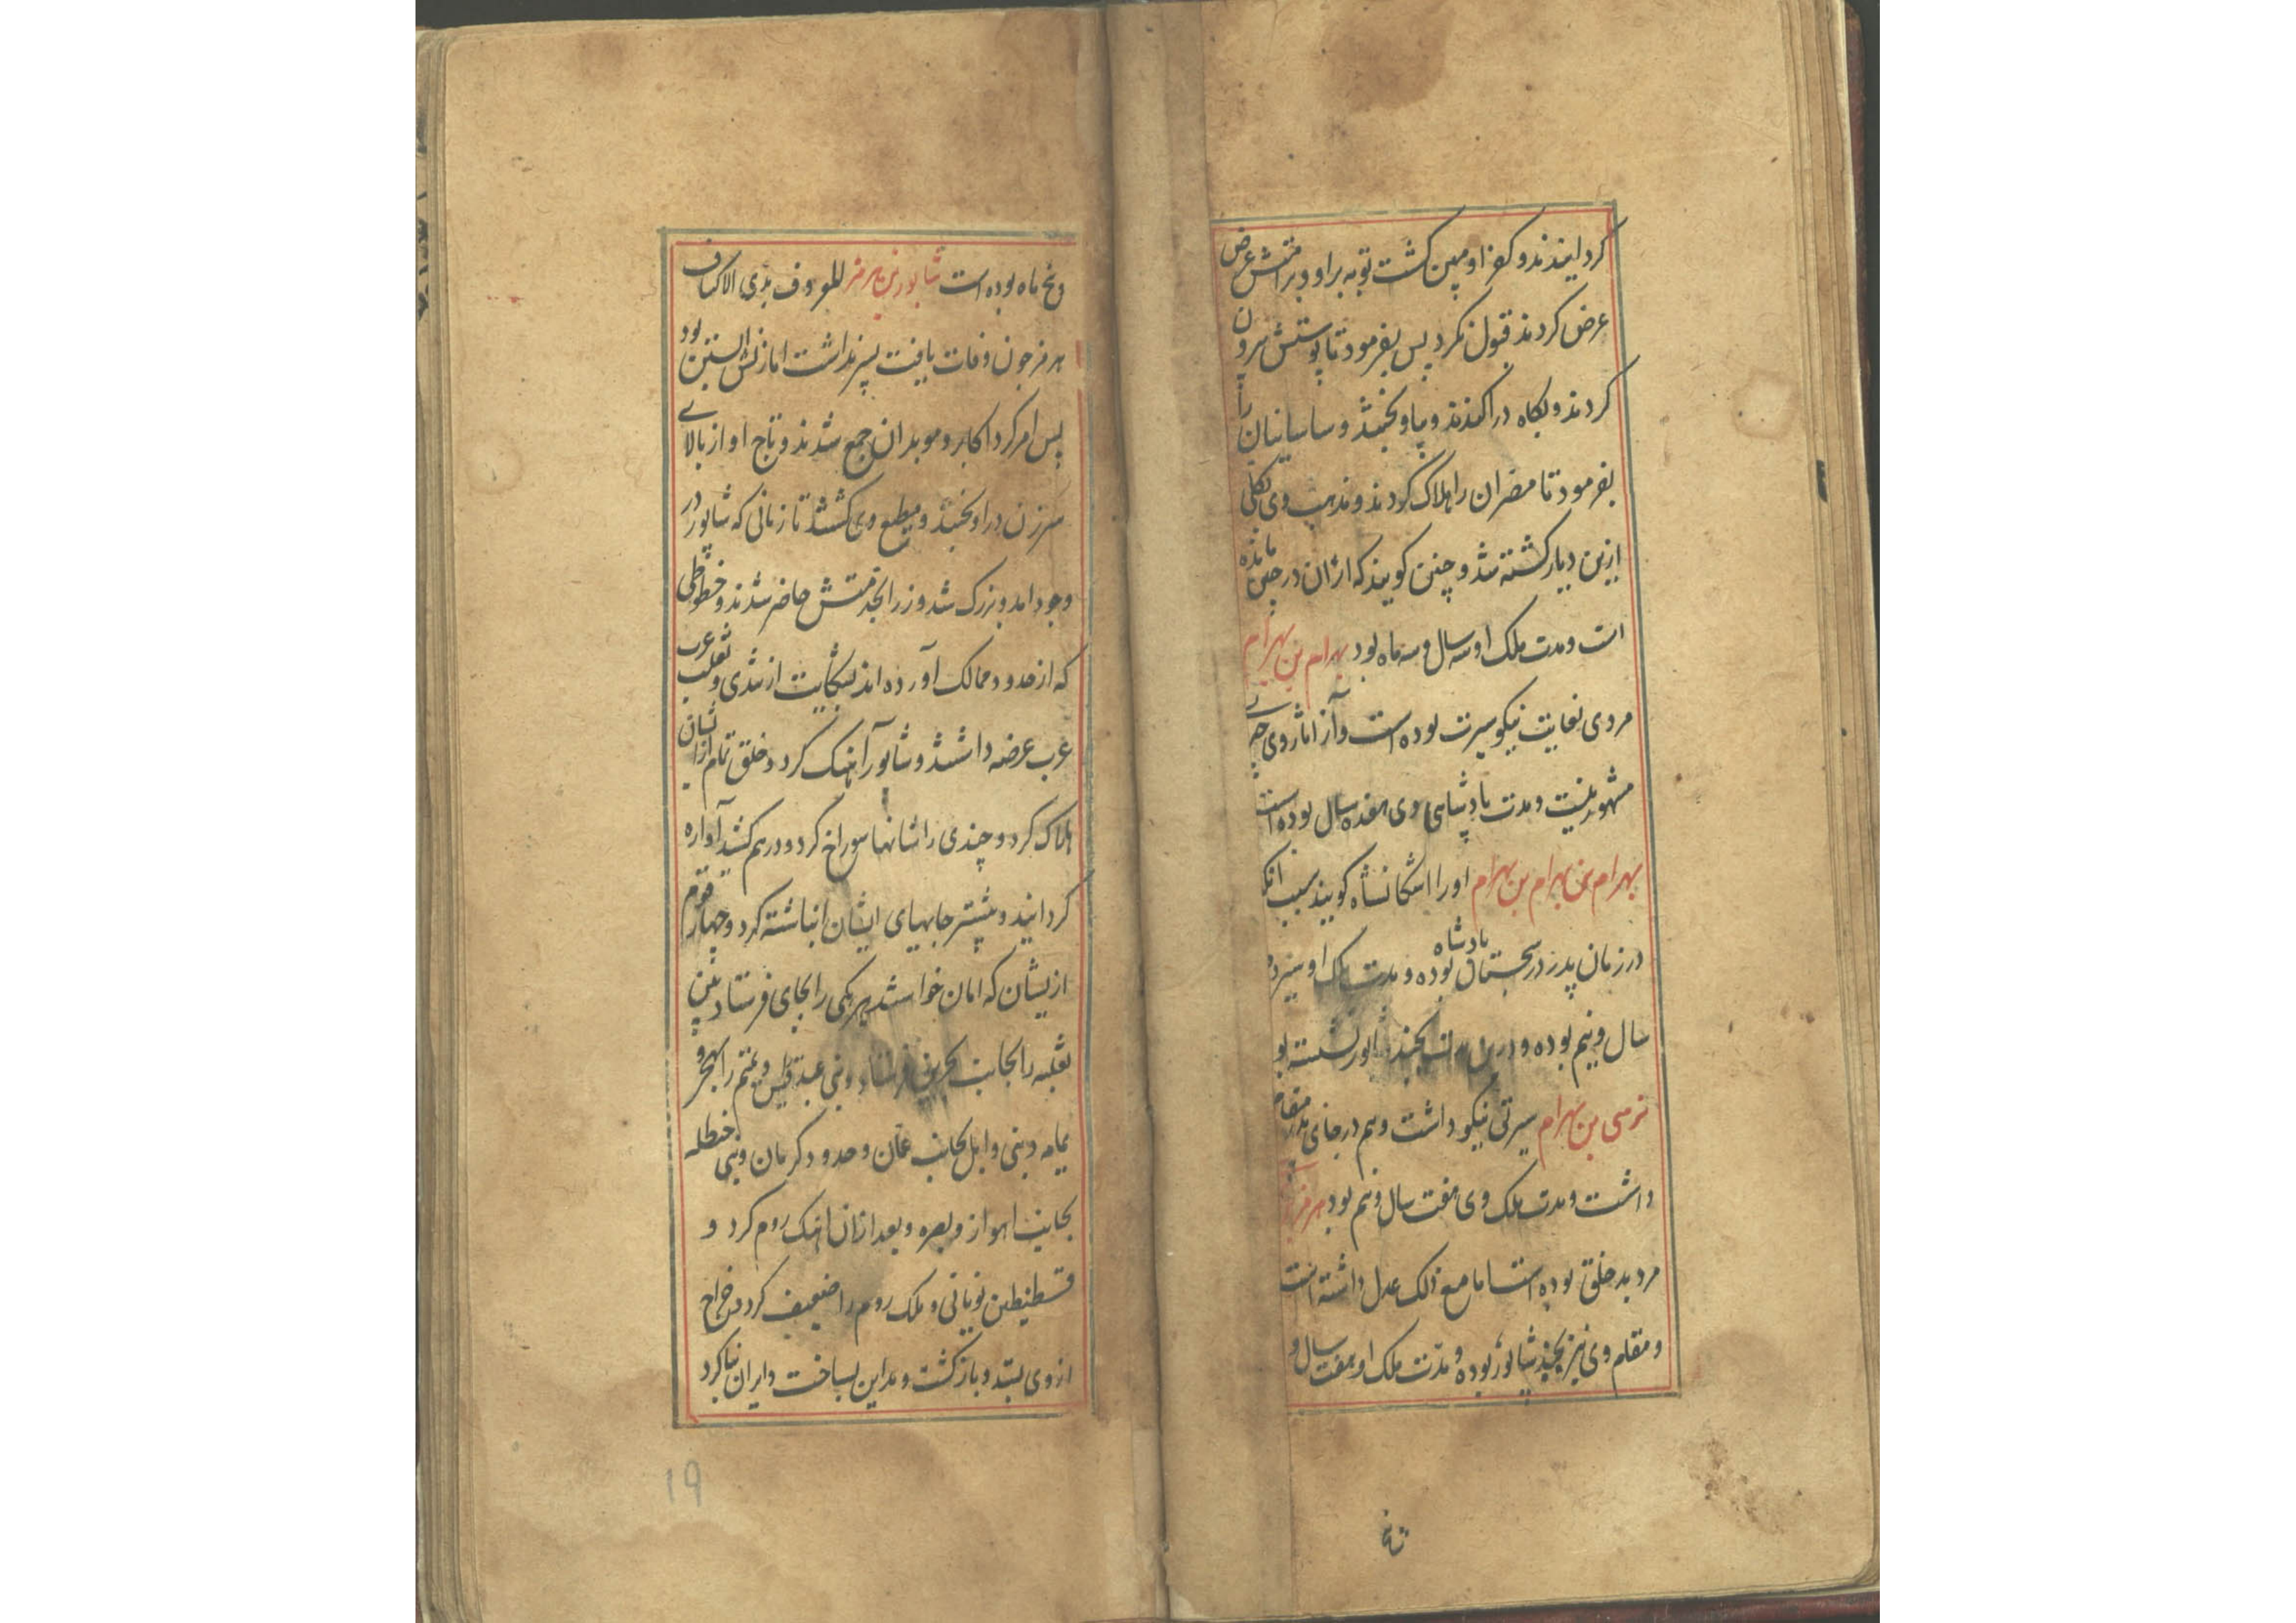 کردانیدند و کفر او مبین کشت توبه براو و برامتش عرض
عرض کردند قبول نکرد پس بفرمود تا پوستش بیرون
کردند و بکاه دراکندند و بیاویختند و ساسانیان را
بفرمود تا مضران را هلاک کردند و مذهب وی بکلی
ازین دیار کشته شد و چنین کویند که ازان در چین مانده
است و مدت ملک او سه سال و سه ماه بود بهرام بن بهرام
مردی بغایت نیکو سیرت بوده است و از اثار وی چیزی
مشهور نیست و مدت پادشاهی وی هفده سال بوده است
بهرام بن بهرام بن بهرام او را اشکانشاه کویند سبب انکه
در زمان پدر در سجستان پادشاه بوده و مدت ملک او سیزده
سال و نیم بوده و در بجند شابور نشسته بود
نرسی بن بهرام سیرتی نیکو داشت و هم در جای پدر مقام
داشت و مدت ملک وی هفت سال و نیم بود هرمز
مرد بد خلق بوده است اما مع ذلک عدل داشته است
و مقام وی نیز بجند شاپور بوده و مدت ملک او هفت سال و
پنج
و پنج ماه بوده است شابور بن هرمز المعروف بذی الاکتاف
هرمز چون وفات یافت پسر نداشت اما زنش آبستن بود
پس امر کرد اکابر و موبدان جمع شدند و تاج او از بالای
سر زن دراویختند و مطیع وی کشتند تا زمانی که شاپور در
وجود امد و بزرک شد و وزرا بخدمتش حاضر شدند و خطوطی
که از حدود ممالک آورده اند بشکایت از تعدی و تغلب عرب
عرب عرضه داشتند و شابور آهنک کرد و خلق تمام از ایشان
هلاک کرد و چندی را شانها سوراخ کرد و درهم کشید آواره
کردانید و بیشتر جاههای ایشان انباشته کرد و چهار قوم
ازیشان که امان خواستند هر یکی را بجای فرستاد بنی
تغلبه را بجانب بحرین فرستاد و بنی عبد قیس و تمیم را بهجر و
یمامه و بنی وایل بجانب عمان و حدود کرمان و بنی حنظله
بجانب اهواز و بصره و بعد ازان اهنک روم کرد و
قسطنطین یونانی و ملک روم را ضعیف کرد و خراج
از وی بستد و بازکشت و مداین بساخت و ایران بنا کرد
19